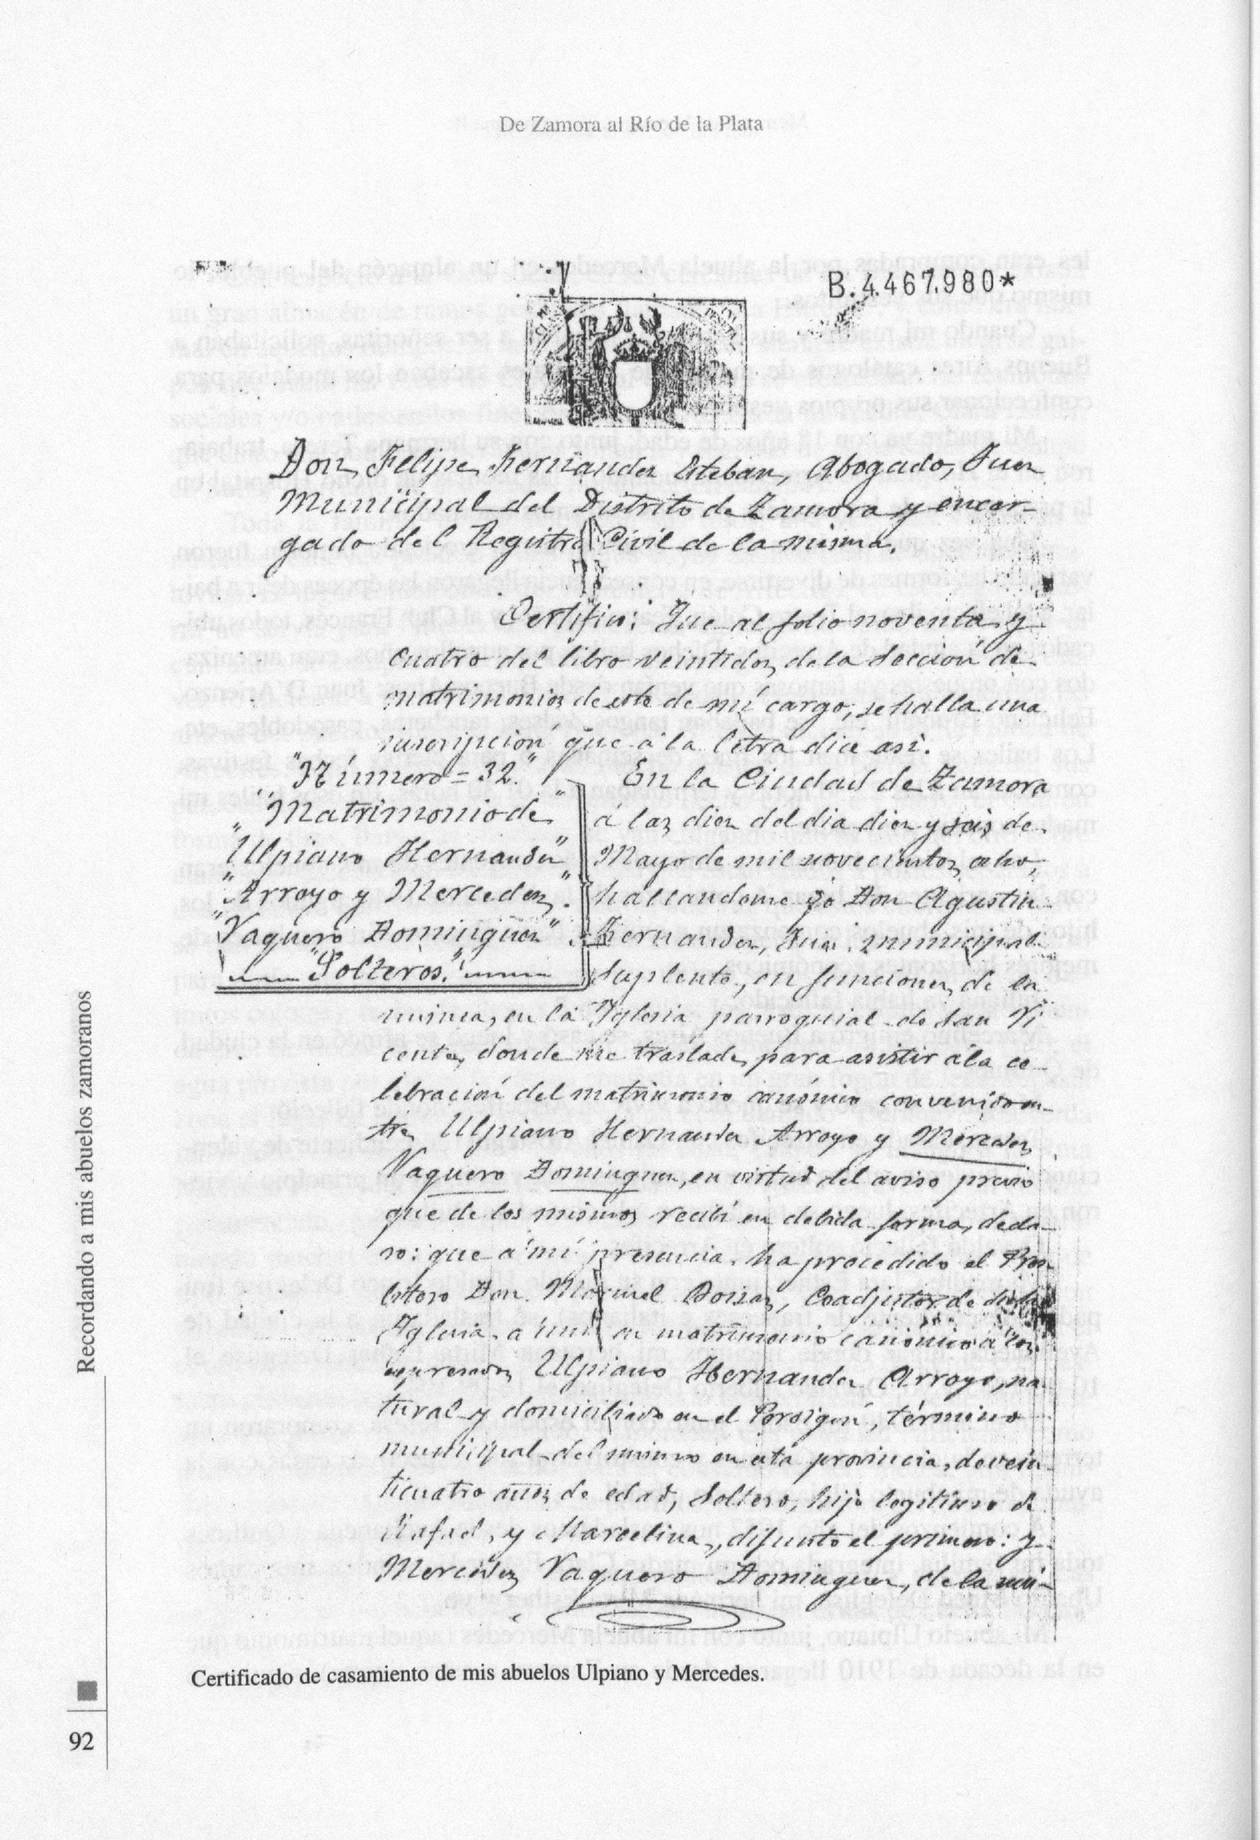 De Zamora al Río de la Plata
B.4467.980*
Don Felipe Hernandez Esteban, Abogado, Juez
Municipal del Distrito de Zamora y encar-
gado del Registro Civil de la misma.
Certifico: Que al folio noventa y
cuatro del libro veintidos de la Sección de
matrimonios de este de mi cargo, se halla una
inscripción que á la letra dice así.
"Número = 32."
"Matrimonio de"
"Ulpiano Hernandez"
"Arroyo y Mercedes"
"Vaquero Dominguez"
"Solteros."
En la Ciudad de Zamora
á las diez del dia diez y seis de
Mayo de mil novecientos ocho,
hallandome yo Don Agustin
Hernandez, Juez municipal
suplente, en funciones de la
misma, en la Iglesia parroquial de San Vi
cente, donde me traslade para asistir á la ce-
lebración del matrimonio canónico convenido en-
tre Ulpiano Hernandez Arroyo y Mercedes
Vaquero Dominguez, en virtud del aviso previo
que de los mismos recibí en debida forma, decla-
ro: que á mi presencia ha procedido el Pres
bitero Don Manuel Coadjutor de dicha
Iglesia á unir en matrimonio canónico á los
expresados Ulpiano Hernandez Arroyo, na
tural y domiciliado en el Perdigón, término
municipal del mismo en esta provincia, de vein-
ticuatro años de edad, Soltero, hijo legitimo de
Rafael y Marcelina, difunto el primero: y
Mercedes Vaquero Dominguez, de la mis-
Certificado de casamiento de mis abuelos Ulpiano y Mercedes.
Recordando a mis abuelos zamoranos
92